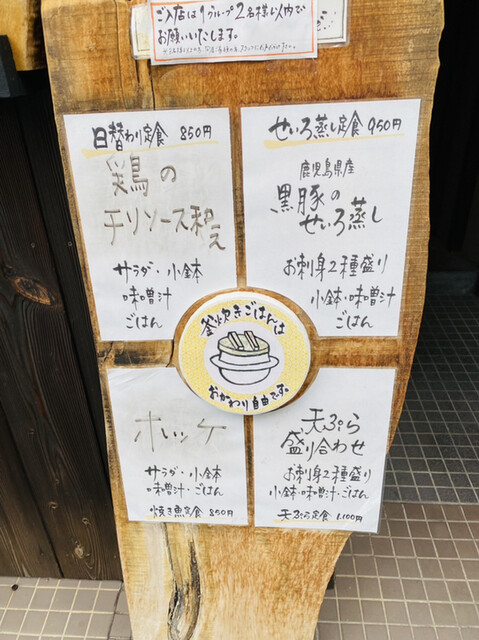 ご入店は1グループ2名様以内で
お願いいたします。
日替わり定食 850円
鶏の
チリソース和え
サラダ・小鉢
味噌汁
ごはん
せいろ蒸し定食 950円
鹿児島県産
黒豚の
せいろ蒸し
お刺身2種盛り
小鉢・味噌汁
ごはん
釜炊きごはんは
おかわり自由です。
ホッケ
サラダ・小鉢
味噌汁・ごはん
焼き魚定食 850円
天ぷら
盛り合わせ
お刺身2種盛り
小鉢・味噌汁・ごはん
天ぷら定食 1,100円